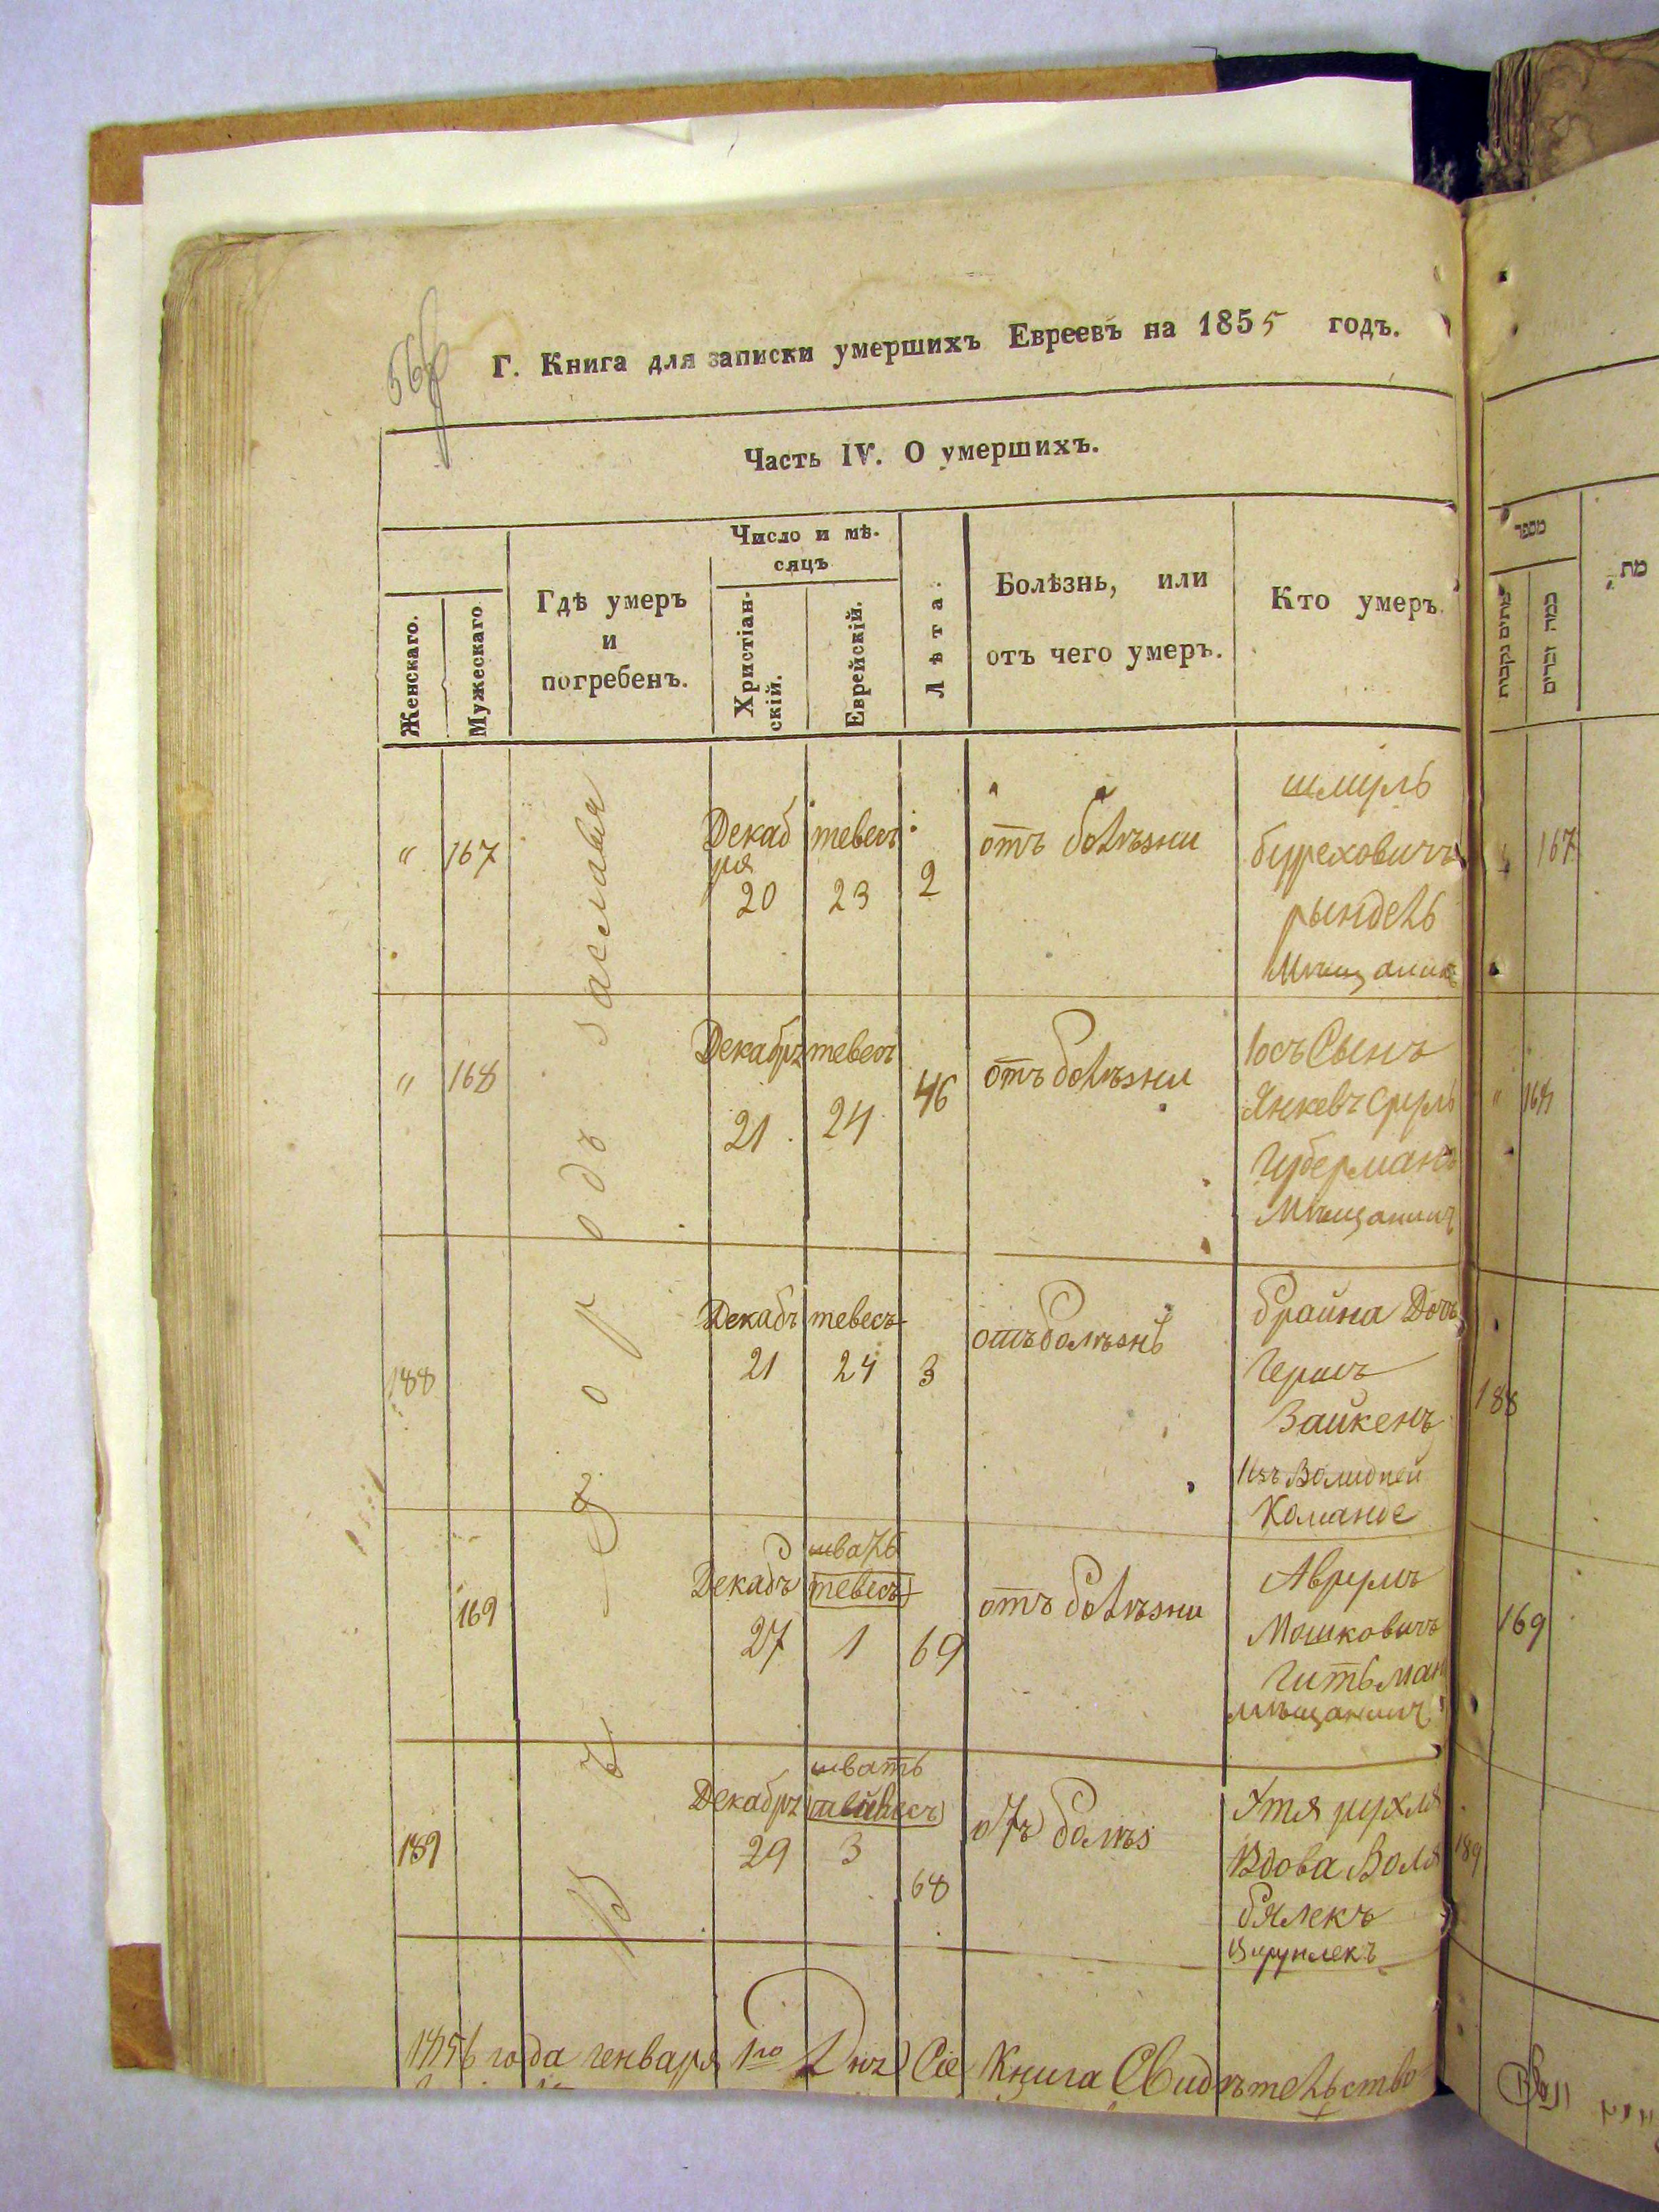 Г. Книга для записки умершихъ Евреевъ на 1855 годъ.
Часть IV. О умершихъ.
Женскаго.
Мужескаго
Гдѣ умеръ
и
погребенъ.
Число и мѣ-
сяцъ
Христіан-
скій.
Еврейскій.
Лѣта.
Болѣзнь, или
отъ чего умеръ.
Кто умеръ.
Въ городѣ заславля
" 167
Декаб
ря
20
тевесъ
23
2
отъ болѣзни
шмуль
Буреховичъ
рындель
Мѣщанинъ
" 168
Декабръ
21
тевесъ
24
46
отъ болѣзни
Іосъ Сынъ
Янкевъ Сруль
Губерманъ
Мѣщанинъ
188
Декабъ
21
тевесъ
24
3
отъ болѣзнь
брайна Дочь
Зайкенъ
Команде
169
Декабъ
27
шватъ
тевесъ
1
69
отъ болѣзни
Аврумъ
Мошковичъ
Гитьман
мѣщанинъ
189
Декабръ
29
шватъ
3
68
отъ болѣз
Этя рухля
Вдова Воля
бялекъ
1856 года генваря 1го Дня Сіе Книга Свидѣтельство
מספר
מת
כמה זכרים
" 167
" 168
188
169
189